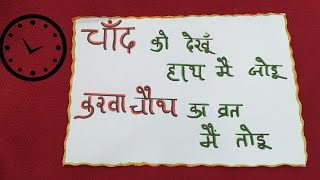 चाँद को देखूँ
हाथ मैं जोडू
करवा चौथ का व्रत
मैं तोडू